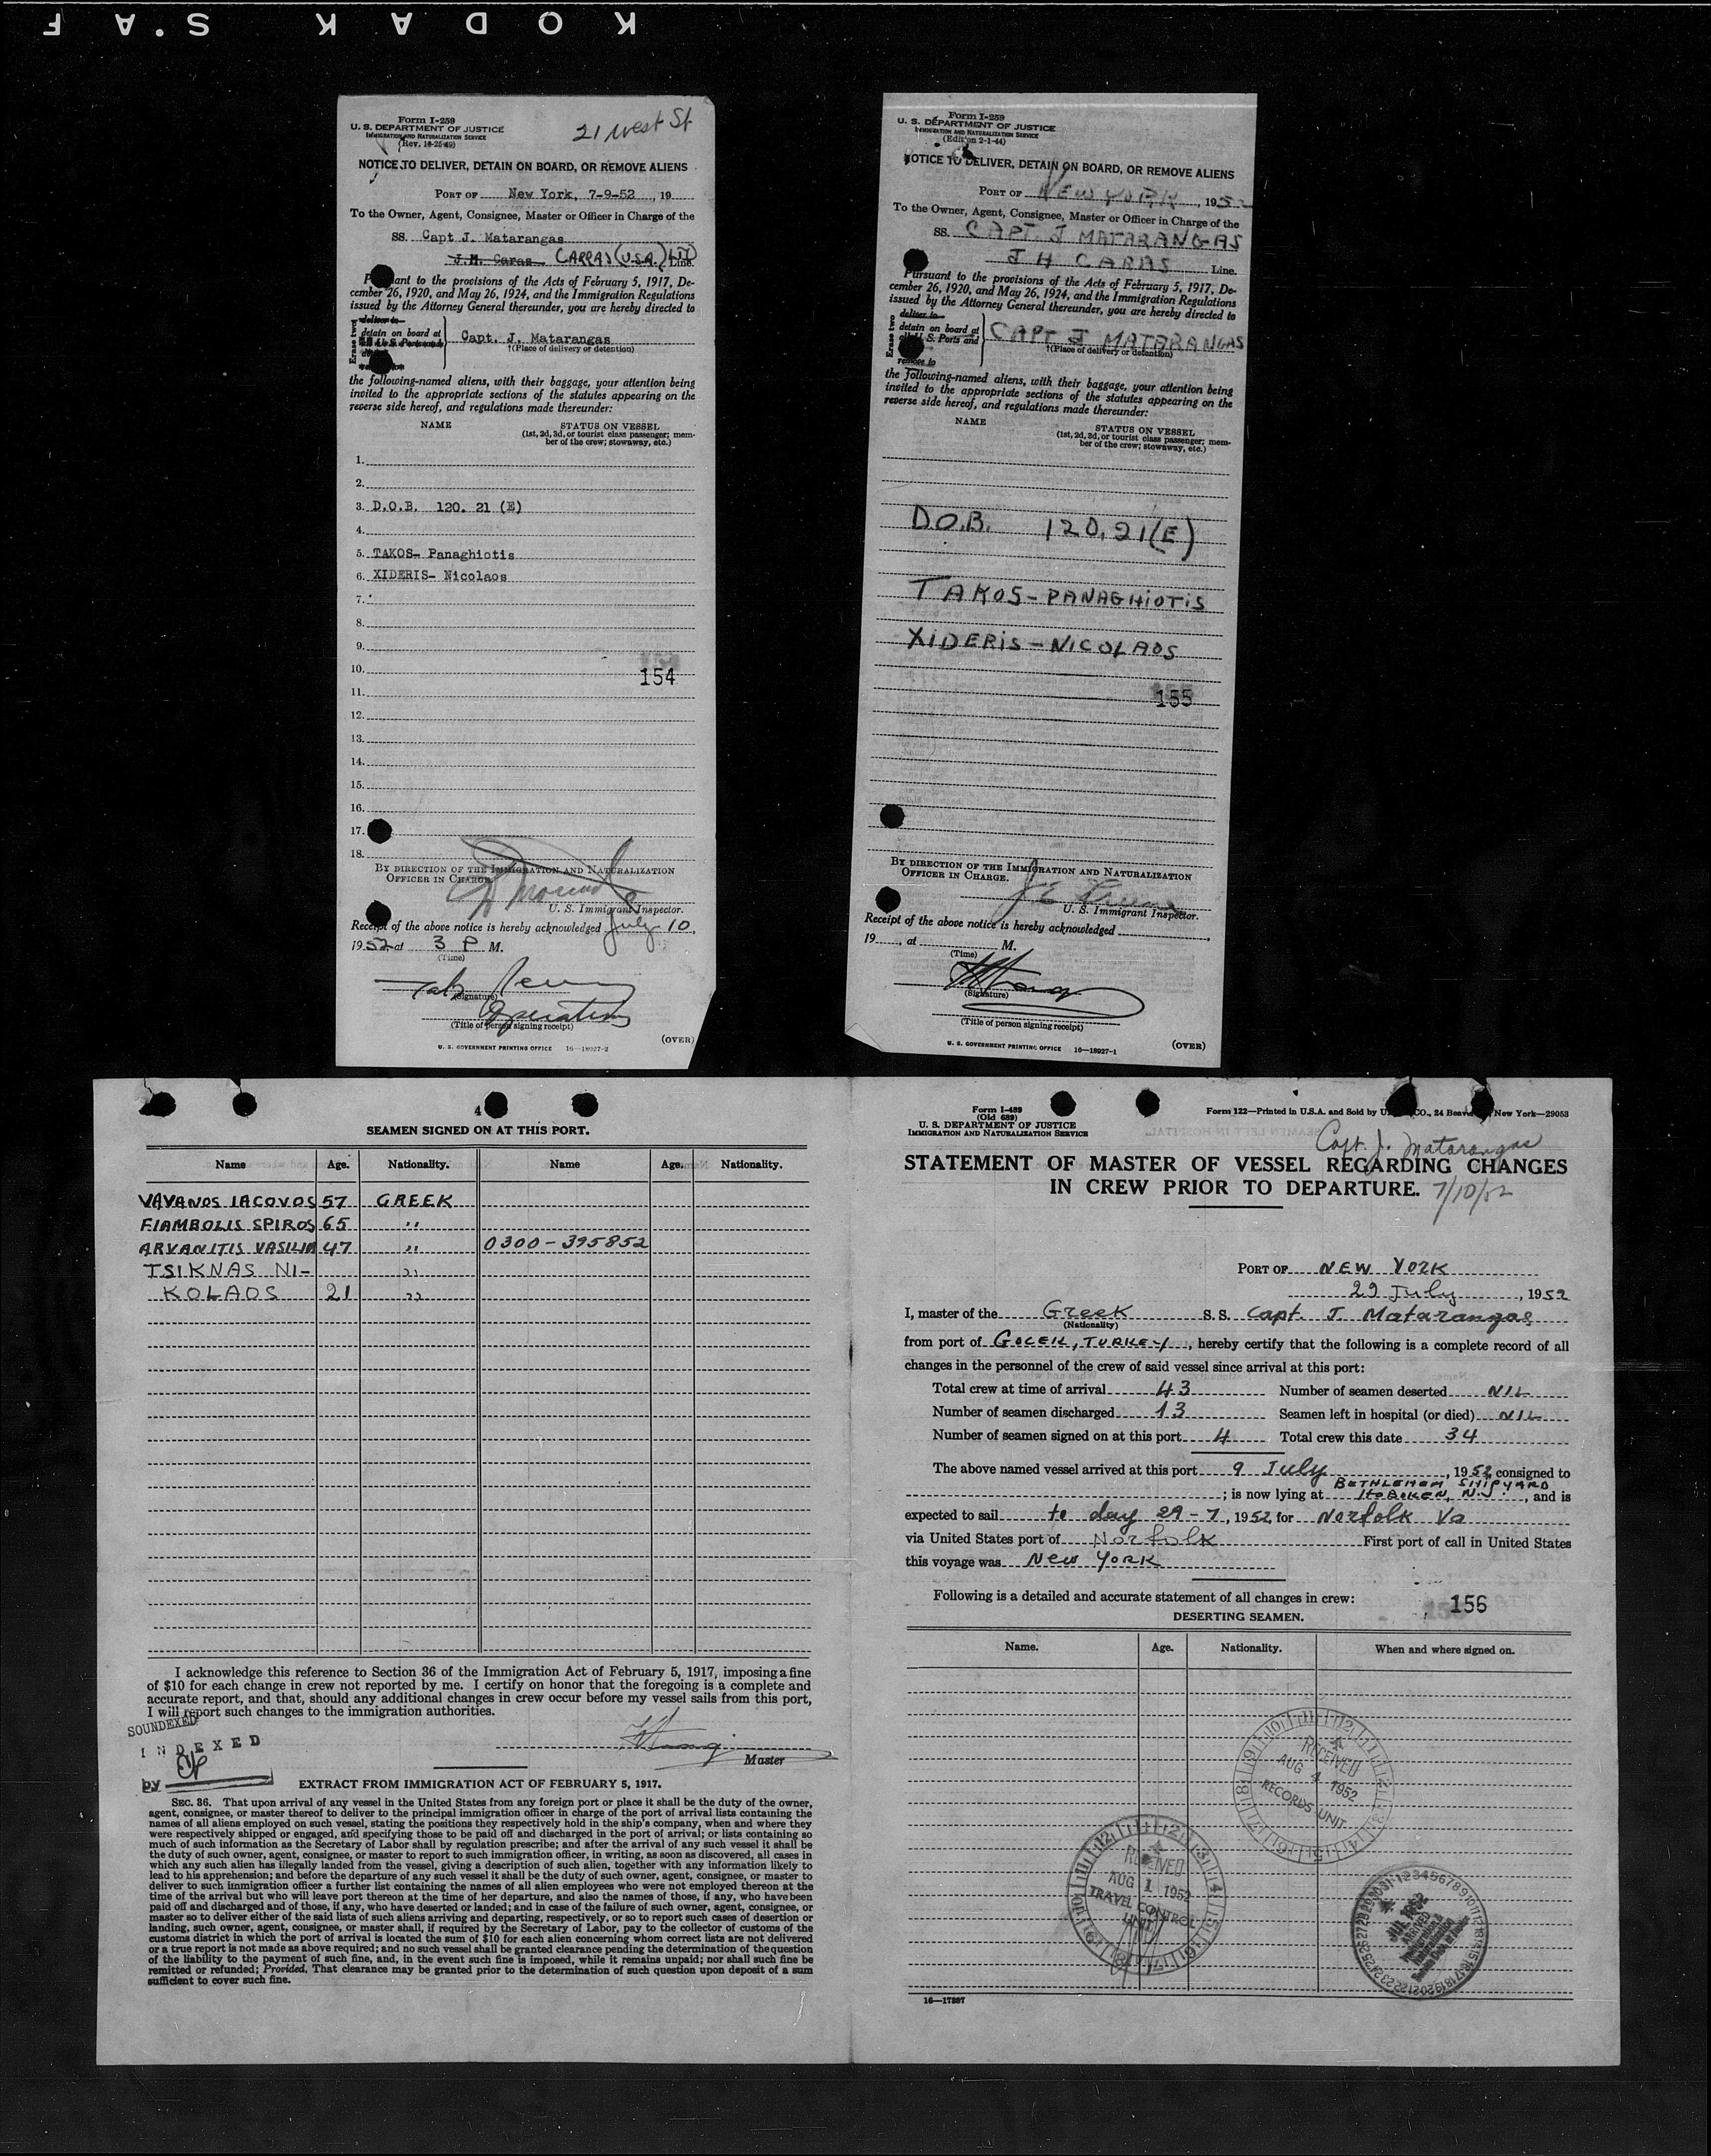 KODAK S.A F
Form I-259
U. S. DEPARTMENT OF JUSTICE
IMMIGRATION AND NATURALIZATION SERVICE
(Rev. 10-25-49)
21 West St
NOTICE TO DELIVER, DETAIN ON BOARD, OR REMOVE ALIENS
PORT OF New York, 7-9-52, 19
To the Owner, Agent, Consignee, Master or Officer in Charge of the
SS. Capt J. Matarangas
J.M. Caras CARRAS (U.S.A.) LTD Line.
P ant to the provisions of the Acts of February 5, 1917, De-
cember 26, 1920, and May 26, 1924, and the Immigration Regulations
issued by the Attorney General thereunder, you are hereby directed to
Erase two
deliver to
detain on board at
all U. S. Ports and
Capt. J. Matarangas
†(Place of delivery or detention)
the following-named aliens, with their baggage, your attention being
invited to the appropriate sections of the statutes appearing on the
reverse side hereof, and regulations made thereunder:
NAME STATUS ON VESSEL
(1st, 2d, 3d, or tourist class passenger; mem-
ber of the crew; stowaway, etc.)
1.
2.
3. D.O.B. 120. 21 (E)
4.
5. TAKOS- Panaghiotis
6. XIDERIS- Nicolaos
7.
8.
9.
10. 154
11.
12.
13.
14.
15.
16.
17.
18.
BY DIRECTION OF THE IMMIGRATION AND NATURALIZATION
OFFICER IN CHARGE.
U. S. Immigrant Inspector.
Receipt of the above notice is hereby acknowledged July 10,
1952 at 3 P M.
(Time)
(Signature)
Operations
(Title of person signing receipt)
(OVER)
U. S. GOVERNMENT PRINTING OFFICE 16—18927-2
Form I-259
U. S. DEPARTMENT OF JUSTICE
IMMIGRATION AND NATURALIZATION SERVICE
(Edition 2-1-44)
NOTICE TO DELIVER, DETAIN ON BOARD, OR REMOVE ALIENS
PORT OF NEW YORK, 1952
To the Owner, Agent, Consignee, Master or Officer in Charge of the
SS. CAPT. J MATARANGAS
J H CARAS Line.
Pursuant to the provisions of the Acts of February 5, 1917, De-
cember 26, 1920, and May 26, 1924, and the Immigration Regulations
issued by the Attorney General thereunder, you are hereby directed to
Erase two
deliver to
detain on board at
all U. S. Ports and
remove to
CAPT J MATARANGAS
†(Place of delivery or detention)
the following-named aliens, with their baggage, your attention being
invited to the appropriate sections of the statutes appearing on the
reverse side hereof, and regulations made thereunder:
NAME STATUS ON VESSEL
(1st, 2d, 3d, or tourist class passenger; mem-
ber of the crew; stowaway, etc.)
D.O.B. 120.21(E)
TAKOS-PANAGHIOTIS
XIDERIS-NICOLAOS
155
BY DIRECTION OF THE IMMIGRATION AND NATURALIZATION
OFFICER IN CHARGE.
U. S. Immigrant Inspector.
Receipt of the above notice is hereby acknowledged
19 , at M.
(Time)
(Signature)
(Title of person signing receipt)
U. S. GOVERNMENT PRINTING OFFICE 16—18927-1 (OVER)
4
SEAMEN SIGNED ON AT THIS PORT.
Name Age. Nationality. Name Age. Nationality.
VAYANOS IACOVOS 57 GREEK
FIAMBOLIS SPIROS 65 "
ARVANITIS VASILIA 47 " 0300-395852
TSIKNAS NI- "
KOLAOS 21 "
I acknowledge this reference to Section 36 of the Immigration Act of February 5, 1917, imposing a fine
of $10 for each change in crew not reported by me. I certify on honor that the foregoing is a complete and
accurate report, and that, should any additional changes in crew occur before my vessel sails from this port,
I will report such changes to the immigration authorities.
SOUNDEXED
INDEXED
by
Master
EXTRACT FROM IMMIGRATION ACT OF FEBRUARY 5, 1917.
SEC. 36. That upon arrival of any vessel in the United States from any foreign port or place it shall be the duty of the owner,
agent, consignee, or master thereof to deliver to the principal immigration officer in charge of the port of arrival lists containing the
names of all aliens employed on such vessel, stating the positions they respectively hold in the ship's company, when and where they
were respectively shipped or engaged, and specifying those to be paid off and discharged in the port of arrival; or lists containing so
much of such information as the Secretary of Labor shall by regulation prescribe; and after the arrival of any such vessel it shall be
the duty of such owner, agent, consignee, or master to report to such immigration officer, in writing, as soon as discovered, all cases in
which any such alien has illegally landed from the vessel, giving a description of such alien, together with any information likely to
lead to his apprehension; and before the departure of any such vessel it shall be the duty of such owner, agent, consignee, or master to
deliver to such immigration officer a further list containing the names of all alien employees who were not employed thereon at the
time of the arrival but who will leave port thereon at the time of her departure, and also the names of those, if any, who have been
paid off and discharged and of those, if any, who have deserted or landed; and in case of the failure of such owner, agent, consignee, or
master so to deliver either of the said lists of such aliens arriving and departing, respectively, or so to report such cases of desertion or
landing, such owner, agent, consignee, or master shall, if required by the Secretary of Labor, pay to the collector of customs of the
customs district in which the port of arrival is located the sum of $10 for each alien concerning whom correct lists are not delivered
or a true report is not made as above required; and no such vessel shall be granted clearance pending the determination of the question
of the liability to the payment of such fine, and, in the event such fine is imposed, while it remains unpaid; nor shall such fine be
remitted or refunded; Provided, That clearance may be granted prior to the determination of such question upon deposit of a sum
sufficient to cover such fine.
Form I-489
(Old 689)
U. S. DEPARTMENT OF JUSTICE
IMMIGRATION AND NATURALIZATION SERVICE
Form 122—Printed in U.S.A. and Sold by U CO., 24 Beaver New York—29053
Capt. J. Matarangas
STATEMENT OF MASTER OF VESSEL REGARDING CHANGES
IN CREW PRIOR TO DEPARTURE. 7/10/52
PORT OF NEW YORK
29 July, 1952
I, master of the Greek S. S. Capt. J. Matarangas
(Nationality)
from port of GOCEK, TURKEY, hereby certify that the following is a complete record of all
changes in the personnel of the crew of said vessel since arrival at this port:
Total crew at time of arrival 43 Number of seamen deserted NIL
Number of seamen discharged 13 Seamen left in hospital (or died) NIL
Number of seamen signed on at this port 4 Total crew this date 34
The above named vessel arrived at this port 9 July, 1952, consigned to
BETHLEHEM SHIPYARD
; is now lying at HOBOKEN, N.J., and is
expected to sail to day 29-7, 1952, for Norfolk Va
via United States port of Norfolk First port of call in United States
this voyage was New York
Following is a detailed and accurate statement of all changes in crew:
156
DESERTING SEAMEN.
Name. Age. Nationality. When and where signed on.
RECEIVED
AUG 4 1952
RECORDS UNIT
RECEIVED
AUG 1 1952
TRAVEL CONTROL
UNIT
16—17897